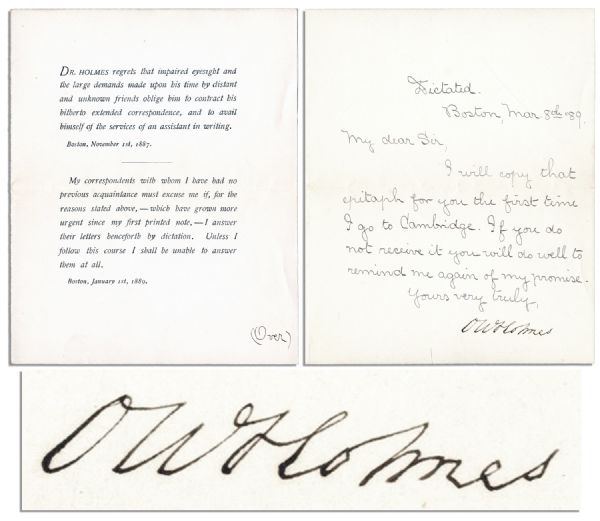 DR. HOLMES regrets that impaired eyesight and
the large demands made upon his time by distant
and unknown friends oblige him to contract his
hitherto extended correspondence, and to avail
himself of the services of an assistant in writing.
Boston, November 1st, 1887.
My correspondents with whom I have had no
previous acquaintance must excuse me if, for the
reasons stated above, — which have grown more
urgent since my first printed note, — I answer
their letters henceforth by dictation. Unless I
follow this course I shall be unable to answer
them at all.
Boston, January 1st, 1889.
(Over)
Dictated.
Boston, Mar. 8th '89.
My dear Sir,
I will copy that
epitaph for you the first time
I go to Cambridge. If you do
not receive it you will do well to
remind me again of my promise.
Yours very truly,
O W Holmes
O W Holmes